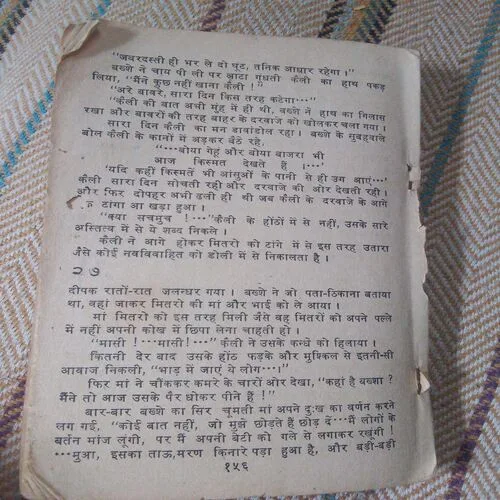 “जबरदस्ती ही भर ले दो घूट, तनिक आधार रहेगा।”
बख्शे ने चाय पी ली पर आटा गूंधती कैली का हाथ पकड़
लिया, “मैंने कुछ नहीं खाना कैली !”
“अरे बावरे, सारा दिन किस तरह कटेगा···”
“कैली की बात अभी मुंह में ही थी, बख्शे ने हाथ का गिलास
रखा और बावरों की तरह बाहर के दरवाजे को खोलकर चला गया।
सारा दिन कैली का मन डावांडोल रहा। बख्शे के सुबहवाले
बोल कैली के कानों में अड़कर बैठे रहे,
“···बोया गेहूं और बोया बाजरा भी
आज किस्मत देखते हैं ।···’
‘यदि कहीं किस्मतें भी आंसुओं के पानी से ही उग आएं···’
कैली सारा दिन सोचती रही और दरवाजे की ओर देखती रही।
और फिर दोपहर अभी ढली ही थी जब कैली के दरवाजे के आगे
टांगा आ खड़ा हुआ।
“क्या सचमुच !···” कैली के होंठों में से नहीं, उसके सारे
अस्तित्व में से ये शब्द निकले।
कैली ने आगे होकर मितरो को टांगे में से इस तरह उतारा
जैसे कोई नवविवाहित को डोली में से निकालता है।
२७
दीपक रातों-रात जलन्धर गया। बख्शे ने जो पता-ठिकाना बताया
था, वहां जाकर मितरो की मां और भाई को ले आया।
मां मितरो को इस तरह मिली जैसे वह मितरो को अपने पल्ले
में नहीं अपनी कोख में छिपा लेना चाहती हो।
“मासी !···मासी !···” कैली ने उसके कन्धे को हिलाया।
कितनी देर बाद उसके होंठ फड़के और मुश्किल से इतनी-सी
आवाज निकली, “भाड़ में जाएं ये लोग···।”
फिर मां ने चौंककर कमरे के चारों ओर देखा, “कहां है बख्शा ?
मैंने तो आज उसके पैर धोकर पीने हैं !”
बार-बार बख्शे का सिर चूमती मां अपने दुःख का वर्णन करने
लग गई, “कोई बात नहीं, जो मुझे छोड़ते हैं छोड़ दें···मैं लोगों के
बर्तन मांज लूंगी, पर मैं अपनी बेटी को गले से लगाकर रखूंगी !
···मुआ, इसका ताऊ, मरण किनारे पड़ा हुआ है, और बड़ी-बड़ी
१५६